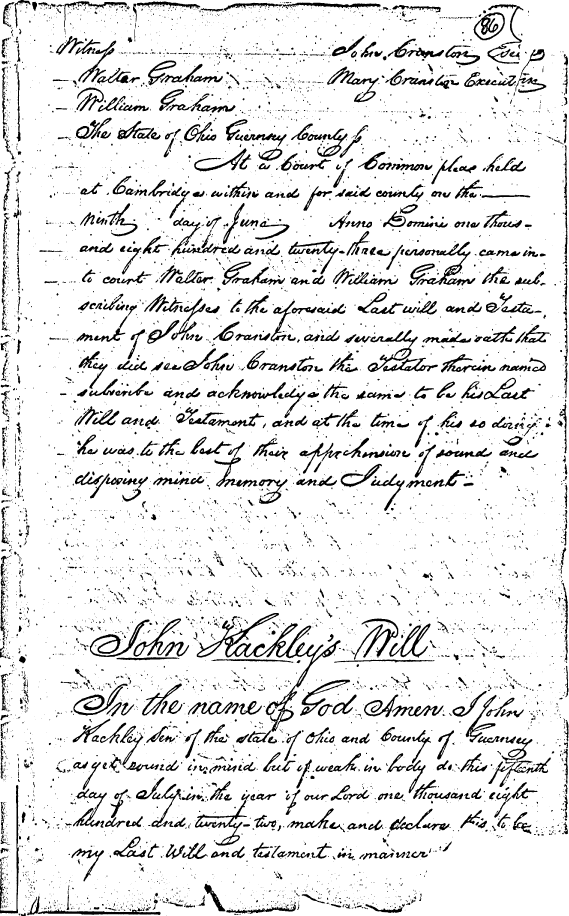 86
Witness John Cranston
Walter Graham Mary Cranston Executrix
William Graham
The State of Ohio Guernsey County
At a Court of Common pleas held
at Cambridge within and for said county on the
ninth day of June Anno Domini one thous-
and eight hundred and twenty-three personally came in-
to court Walter Graham and William Graham the sub-
scribing Witnesses to the aforesaid Last will and Testa-
ment of John Cranston, and severally made oath that
they did see John Cranston the Testator therein named
subscribe and acknowledge the same to be his Last
Will and Testament, and at the time of his so doing
he was to the best of their apprehension of sound and
disposing mind Memory and Judgment -
John Kackley's Will
In the name of God Amen I John
Kackley Sen of the state of Ohio and County of Guernsey
as yet sound in mind but of weak in body do this fifteenth
day of July in the year of our Lord one thousand eight
hundred and twenty-two, make and declare this to be
my Last Will and testament in manner